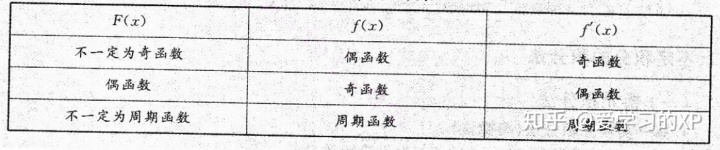 F(x) f(x) f′(x)
不一定为奇函数 偶函数 奇函数
偶函数 奇函数 偶函数
不一定为周期函数 周期函数 周期函数
知乎 @爱学习的XP